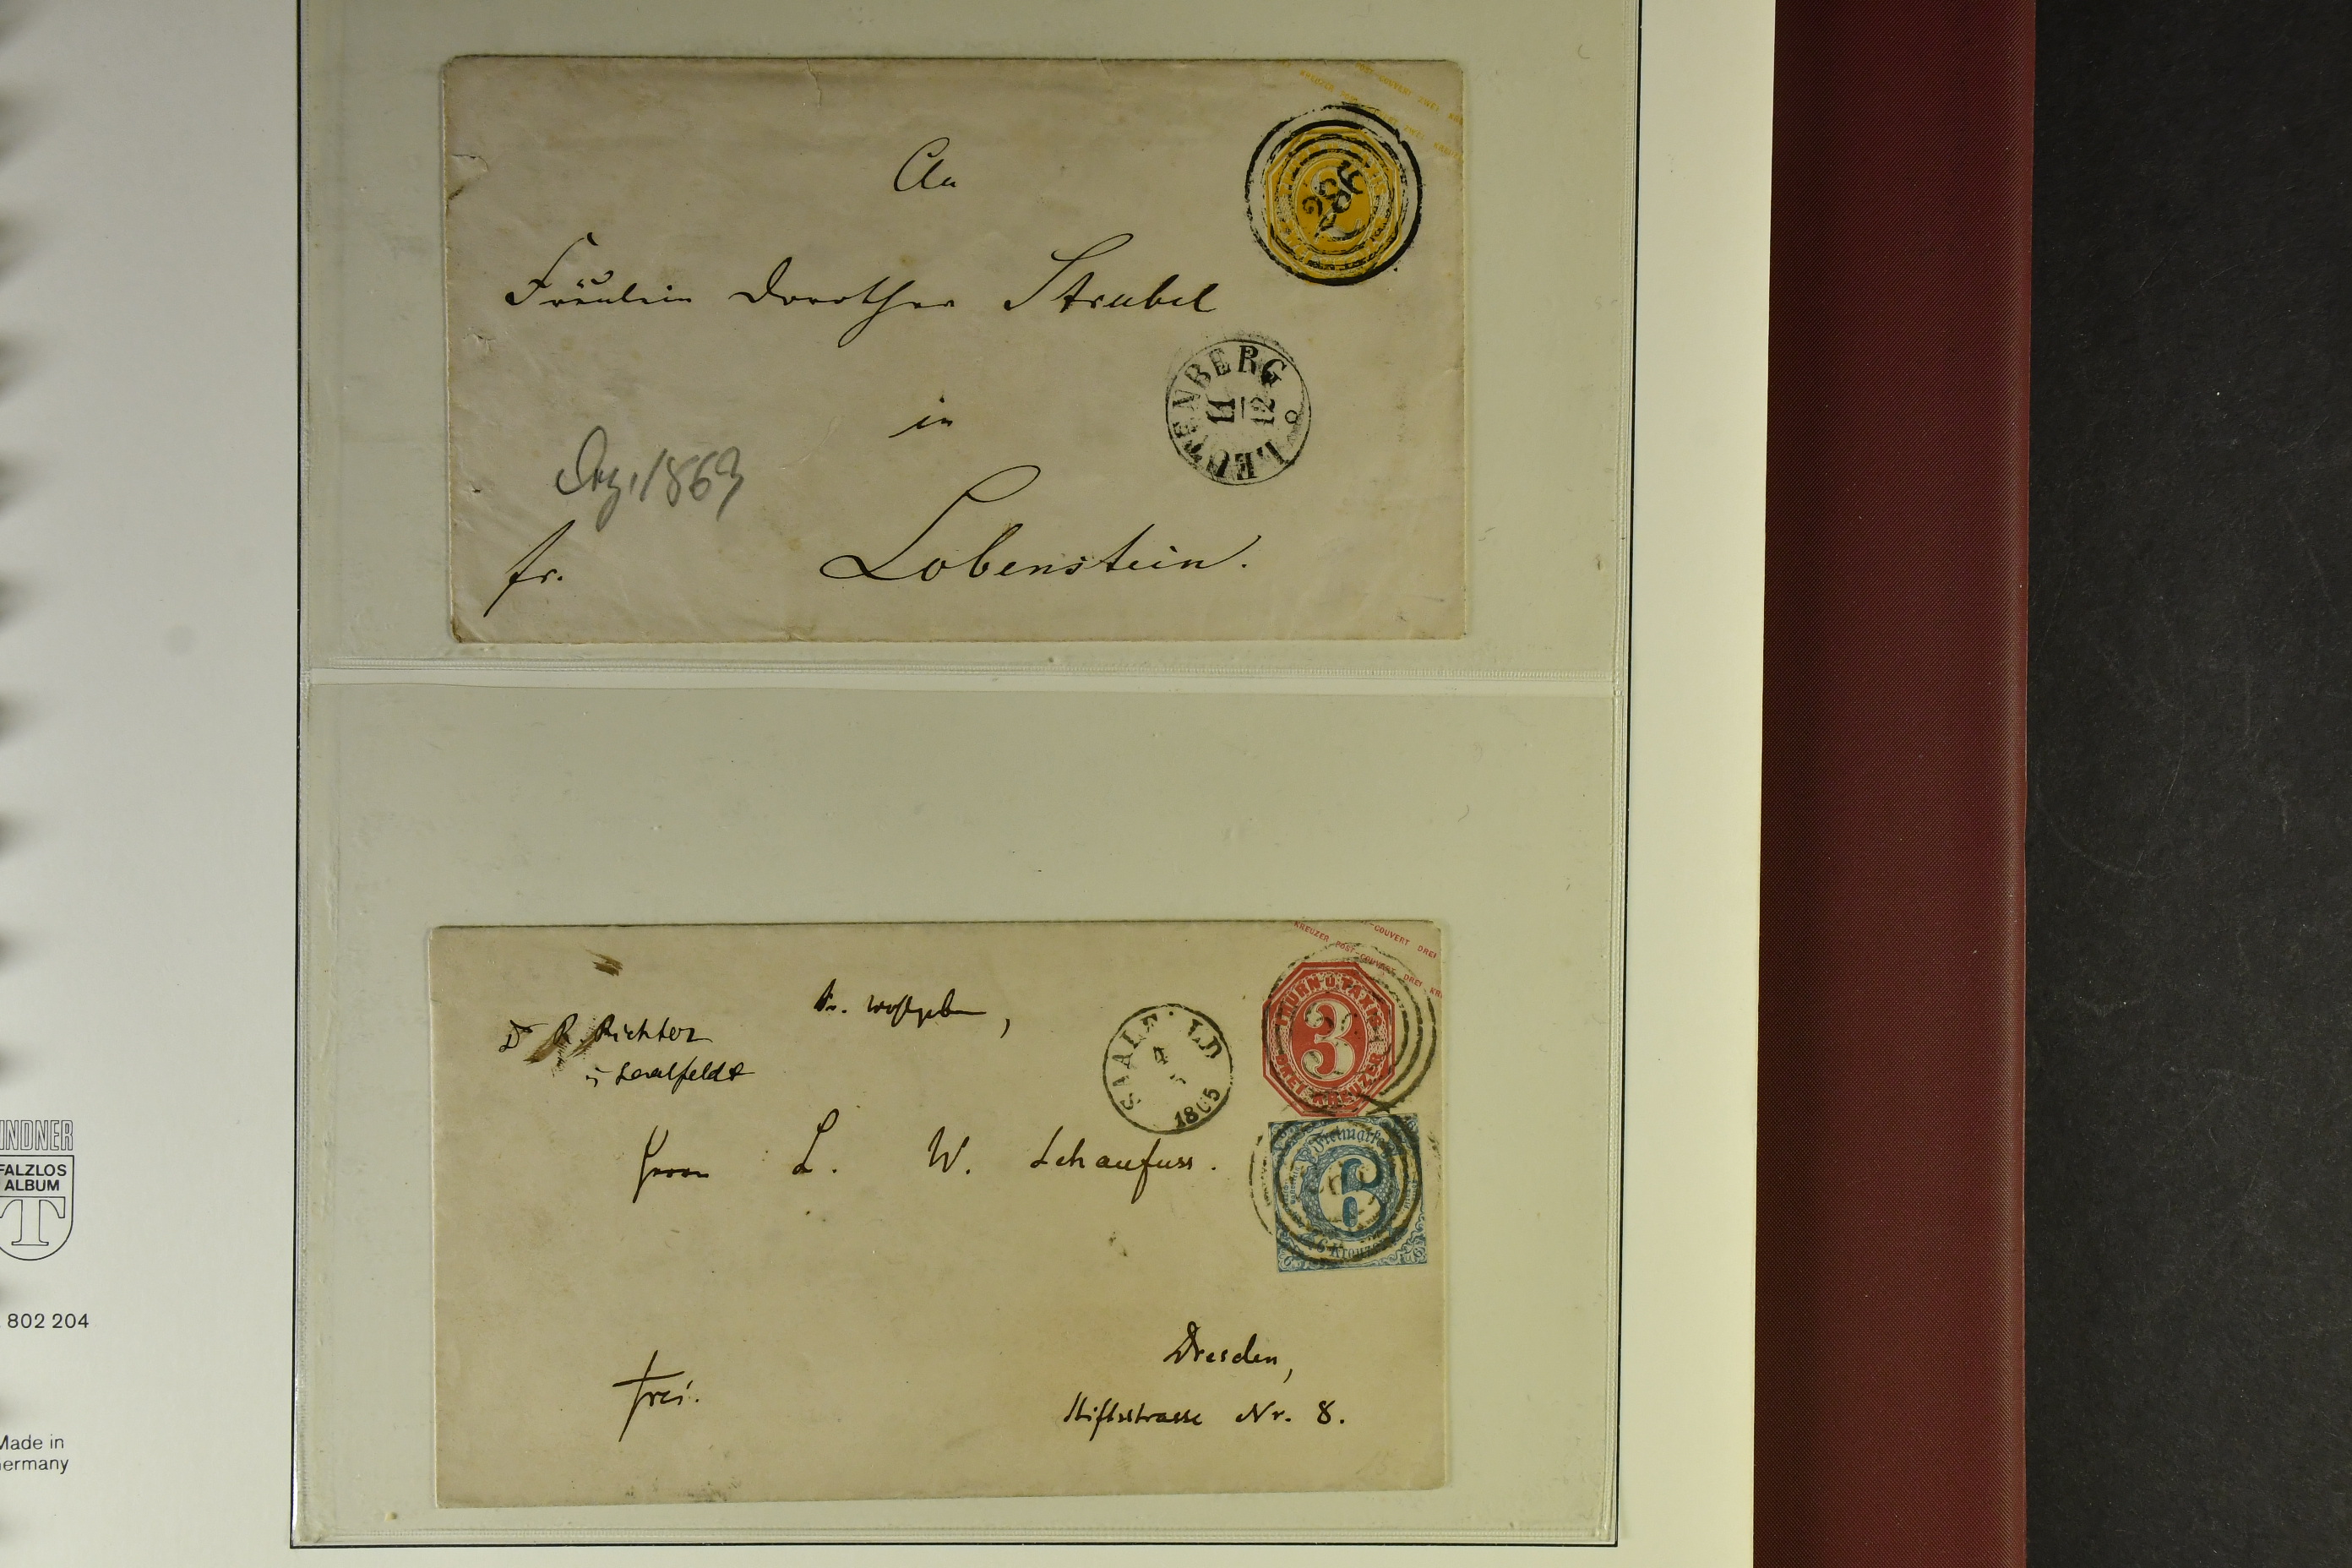 An
Fräulein Dorothea Strubel
in
Lobenstein.
fr.
Dez. 1863
286
LEUTENBERG
11 12
POST-COUVERT ZWEI
KREUZER
Dr R. Richter
in Saalfeldt
Sr. Wohlgeboren,
SAALFELD
4
1865
Herrn L. W. Schaufuss.
Dresden,
Stiftsstrasse Nr. 8.
frei.
KREUZER POST-COUVERT DREI KR
-COUVERT DREI
THURN U. TAXIS
3
DREI KREUZER
Freimarke
6
6 Kreuzer
LINDNER
FALZLOS
ALBUM
T
802 204
Made in
Germany